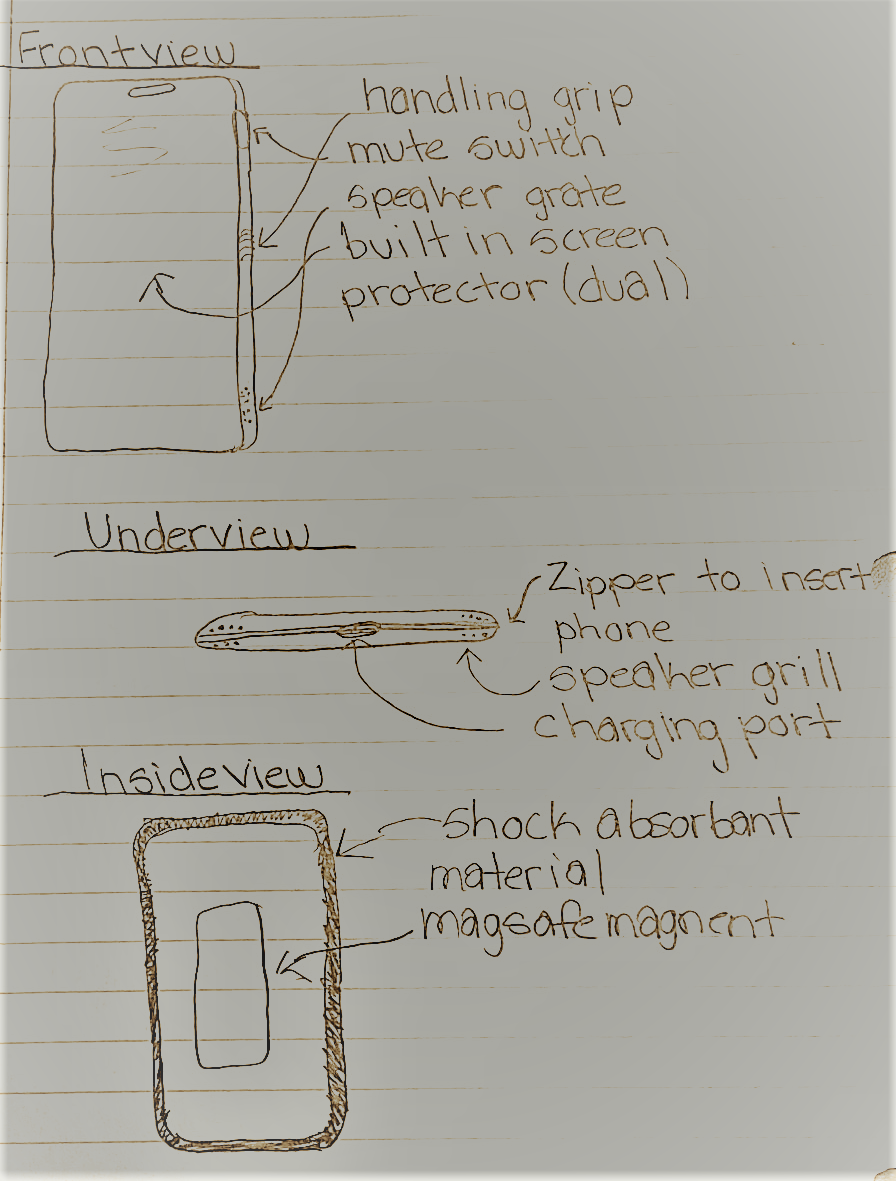 Frontview
handling grip
mute switch
speaker grate
built in screen
protector (dual)
Underview
Zipper to insert
phone
speaker grill
charging port
Insideview
shock absorbant
material
magsafe magnent